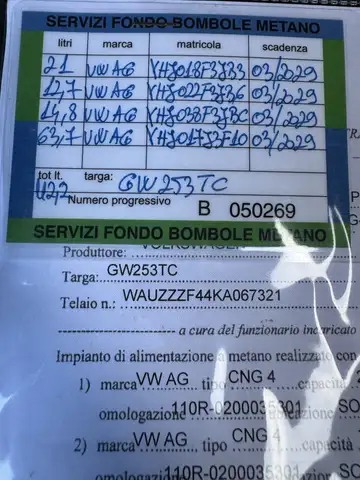 SERVIZI FONDO BOMBOLE METANO
litri marca matricola scadenza
21 VW AG 03/2029
12,7 VW AG 03/2029
14,8 VW AG 03/2029
63,7 VW AG 03/2029
tot lt. targa: GW253TC
112,2
Numero progressivo B 050269
SERVIZI FONDO BOMBOLE METANO
Produttore: VOLKSWAGEN
Targa: GW253TC
Telaio n.: WAUZZZF44KA067321
a cura del funzionario incaricato
Impianto di alimentazione a metano realizzato con
1) marca VW AG tipo CNG 4 capacità
omologazione 110R-0200035301 ubicazione SO
2) marca VW AG tipo CNG 4 capacità
omologazione 110R-0200035301 SO